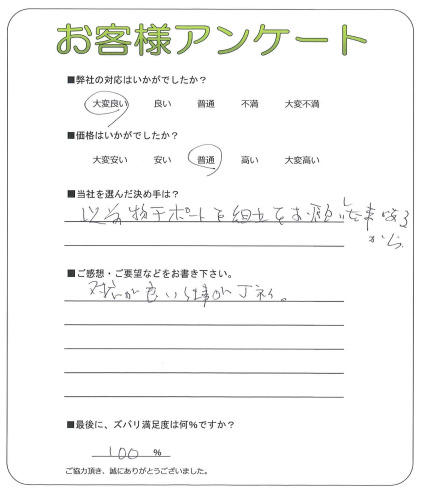 お客様アンケート
■弊社の対応はいかがでしたか?
大変良い 良い 普通 不満 大変不満
■価格はいかがでしたか?
大変安い 安い 普通 高い 大変高い
■当社を選んだ決め手は?
以前物干ポートを組立をお願いした事
から
■ご感想・ご要望などをお書き下さい。
対応が良い 仕事が丁ネイ。
■最後に、ズバリ満足度は何%ですか?
100 %
ご協力頂き、誠にありがとうございました。